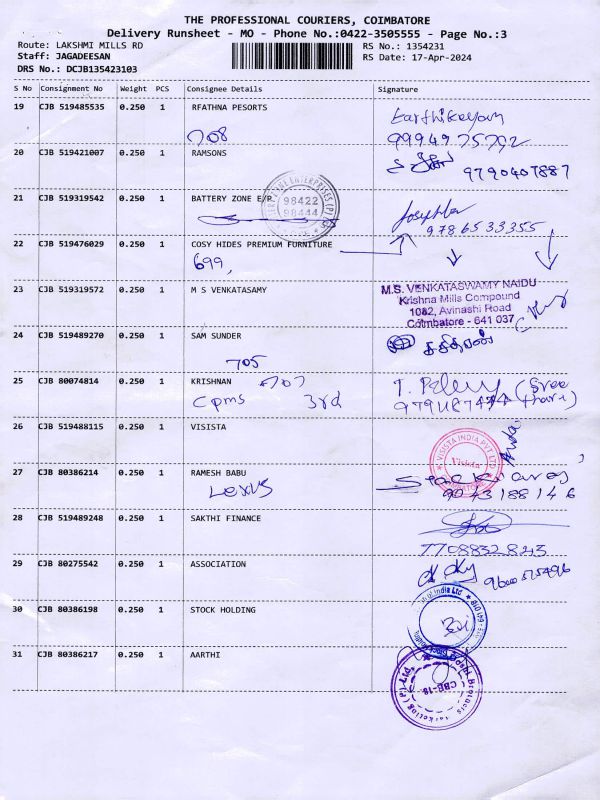 THE PROFESSIONAL COURIERS, COIMBATORE
Delivery Runsheet - MO - Phone No.:0422-3505555 - Page No.:3
Route: LAKSHMI MILLS RD RS No.: 1354231
Staff: JAGADEESAN RS Date: 17-Apr-2024
DRS No.: DCJB135423103
S No Consignment No Weight PCS Consignee Details Signature
19 CJB 519485535 0.250 1 RFATHNA PESORTS
Karthikeyan
708 9994975792
20 CJB 519421007 0.250 1 RAMSONS
9790407887
21 CJB 519319542 0.250 1 BATTERY ZONE E/P
98422
98444
9786533355
22 CJB 519476029 0.250 1 COSY HIDES PREMIUM FURNITURE
699,
23 CJB 519319572 0.250 1 M S VENKATASAMY
M.S. VENKATASWAMY NAIDU
Krishna Mills Compound
1082, Avinashi Road
Coimbatore - 641 037
24 CJB 519489270 0.250 1 SAM SUNDER
705
25 CJB 80074814 0.250 1 KRISHNAN 707
Cpms 3rd
26 CJB 519488115 0.250 1 VISISTA
VISISTA INDIA PVT LTD
Visista
27 CJB 80386214 0.250 1 RAMESH BABU
Lexus 9043188146
28 CJB 519489248 0.250 1 SAKTHI FINANCE
7708832843
29 CJB 80275542 0.250 1 ASSOCIATION
9600575496
30 CJB 80386198 0.250 1 STOCK HOLDING
31 CJB 80386217 0.250 1 AARTHI
CBE-18